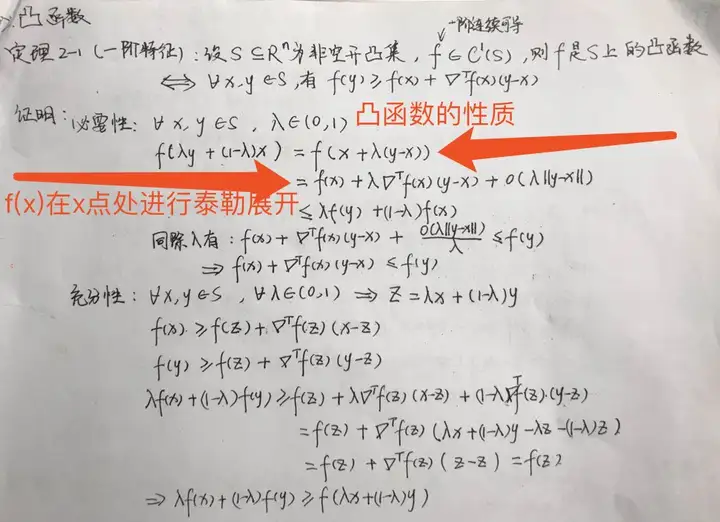 二.凸函数
一阶连续可导
定理2-1（一阶特征）: 设 S ⊆ Rⁿ 为非空开凸集, f ∈ C¹(S), 则 f 是 S 上的凸函数
⟺ ∀ x, y ∈ S, 有 f(y) ≥ f(x) + ∇ᵀf(x)(y-x)
证明: 必要性: ∀ x, y ∈ S, λ ∈ (0,1) 凸函数的性质
f(λy + (1-λ)x) = f(x + λ(y-x))
= f(x) + λ∇ᵀf(x)(y-x) + o(λ||y-x||)
f(x)在x点处进行泰勒展开
≤ λf(y) + (1-λ)f(x)
同除λ有: f(x) + ∇ᵀf(x)(y-x) + o(λ||y-x||)/λ ≤ f(y)
⇒ f(x) + ∇ᵀf(x)(y-x) ≤ f(y)
充分性: ∀x, y ∈ S, ∀λ ∈ (0,1) ⇒ z = λx + (1-λ)y
f(x) ≥ f(z) + ∇ᵀf(z)(x-z)
f(y) ≥ f(z) + ∇ᵀf(z)(y-z)
λf(x) + (1-λ)f(y) ≥ f(z) + λ∇ᵀf(z)(x-z) + (1-λ)∇ᵀf(z)·(y-z)
= f(z) + ∇ᵀf(z)(λx + (1-λ)y - λz - (1-λ)z)
= f(z) + ∇ᵀf(z)(z-z) = f(z)
⇒ λf(x) + (1-λ)f(y) ≥ f(λx + (1-λ)y)